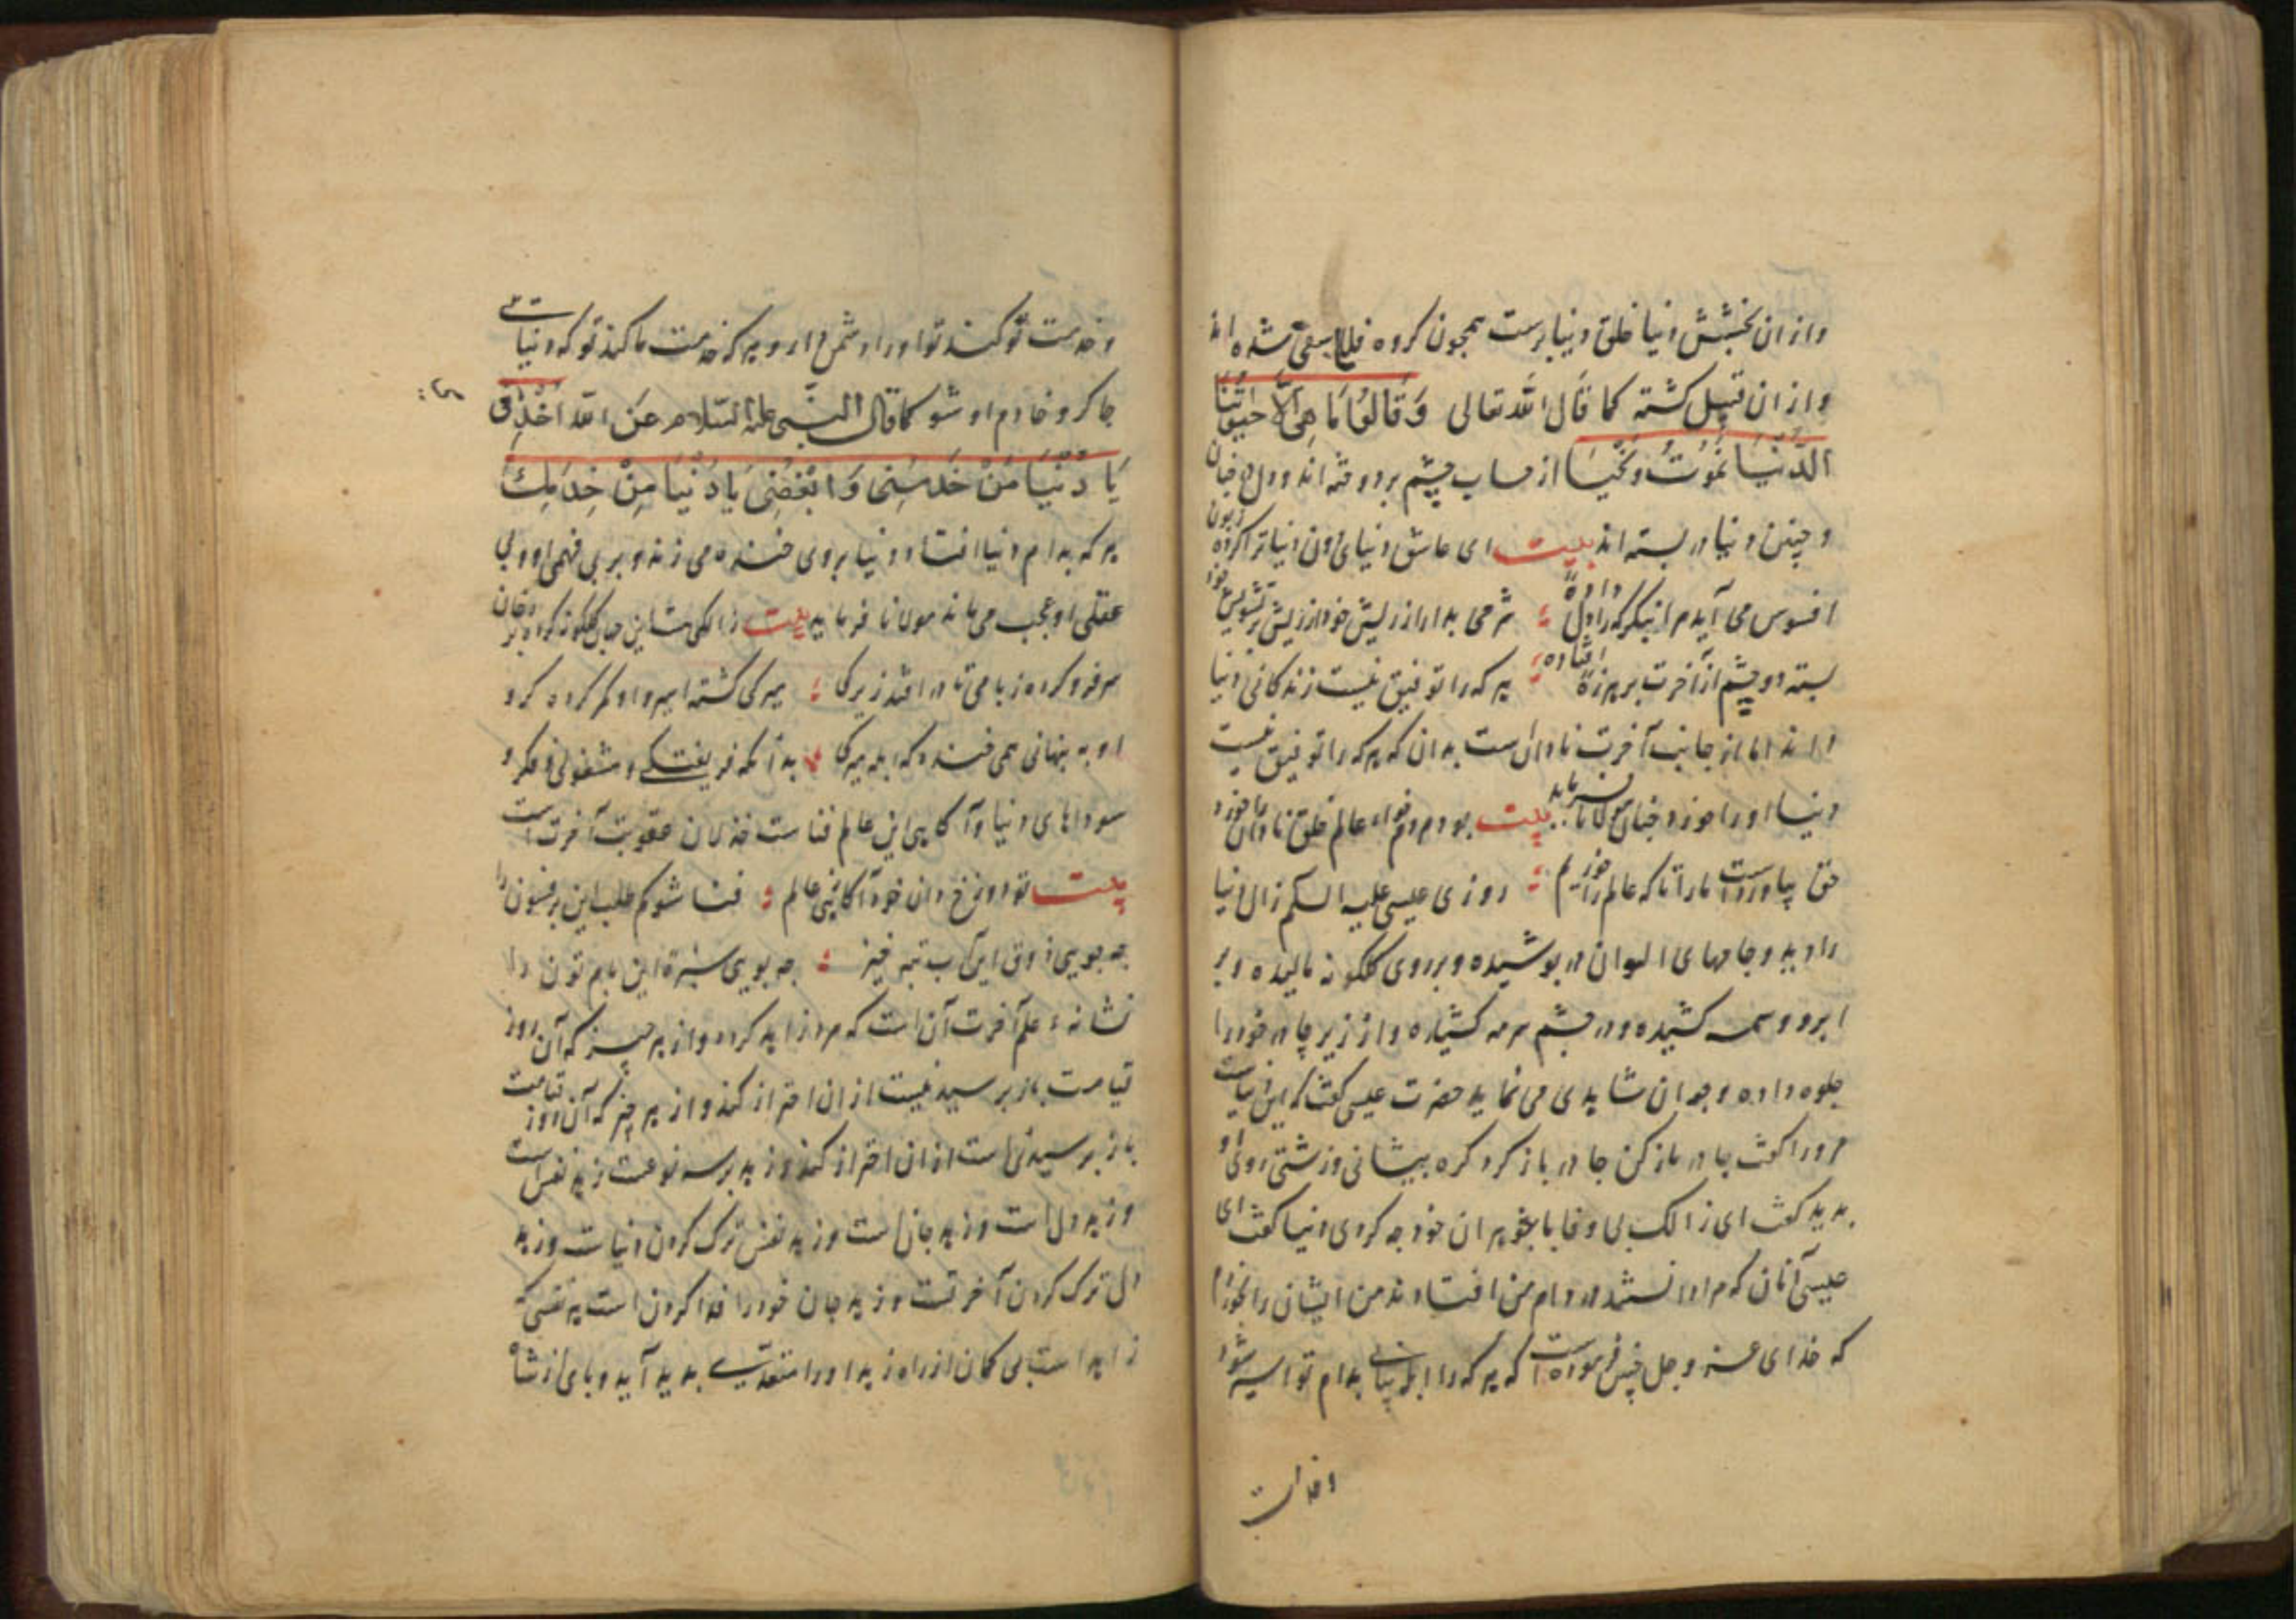 وازان بخشش دنیا خلق دنیا پرست همچون کروه شده اند
وازان قبیل کشته کما قال الله تعالی وَقَالُوا مَا هِیَ اِلَّا حَیٰوتُنَا
الدُّنْیَا نَمُوتُ وَنَحْیَا از حساب چشم بردوخته اند و دل
و چنین دنیا در بسته اند بیت ای عاشق دنیای دون دنیا ترا کرده زبون
افسوس می آید مرا دل داده شرمی بدار از ریش خود
بسته دو چشم از آخرت افتاده هر که را توفیق نیست زندکانی دنیا
داند اما از جانب آخرت نادان است بدان که هر که را توفیق نیست
دنیا او را خورد چنان مولانا فرماید بیت عالم خلق نادان خورد
حق بیاوردست مارا تا که عالم را خوریم روزی عیسی علیه السلام زال دنیا
را دید و جامهای الوان در پوشیده و بر روی کلکونه مالیده و بر
ابرو وسمه کشیده و در چشم سرمه کشیده و از زیر چادر خود را
جلوه داده و جوان شاهدی می نماید حضرت عیسی کفت که این دنیاست
مرورا کفت چادر باز کن چادر باز کرد کره پیشانی و زشتی روی او
بدید کفت ای زالک بی وفا با شوهران خود چه کردی دنیا کفت ای
عیسی آنان که مرا دانستند در دام من افتادند من ایشان را خوردم
که خدای عز و جل چنین فرموده است که هر که را به دام تو اسیر شود
و خدمت
و خدمت تو کند تو او را دشمن دار و هر که خدمت ما کند تو که دنیا
چاکر و خادم او شو کما قال النبی علیه السلام عَن الله اخدمی
یَا دُنْیَا مَنْ خَدَمَنِی وَابْغَضِی یَا دُنْیَا مَنْ خَدَمَكِ
هر که بدام دنیا افتاد دنیا بروی خنده می زند و بر بی فهمی او و بی
عقلی او عجب می ماند مولانا فرماید بیت زالکی هست این جهان کلکونه کرده
سر فرو کرده ز بامی تا در افتد زیرکی میرکی کشته اسیر و او کمر کرده کرو
او به پنهانی همی خندد که ابله میرکی بدانکه فریفتکی و مشغولی و فکر و
سوداهای دنیا و آکاهی این عالم فناست عقوبت آخرت است
بیت تو دوزخ دان خود آکاهی عالم فنا شو کم طلب این سرفزون را
چه جویی ذوق این آب تیره خیز چه بویی سبزهٔ این بام تون را
نشانهٔ علم آخرت آن است که مرد زاهد کردد و از هر چیز که آن روز
قیامت باز پرسید نیست ازان احتراز کند و از هر چیز که آن روز قیامت
باز پرسیدنی است ازان احتراز کند و زهد بر سه نوعست زهد نفس است
و زهد دل است و زهد جان است و زهد نفس ترک کردن دنیاست و زهد
دل ترک کردن آخرتست و زهد جان خود را فدا کردن است هر نفسی که
زاهد است بی کمان از راه زهد او را بدید آید و پای از